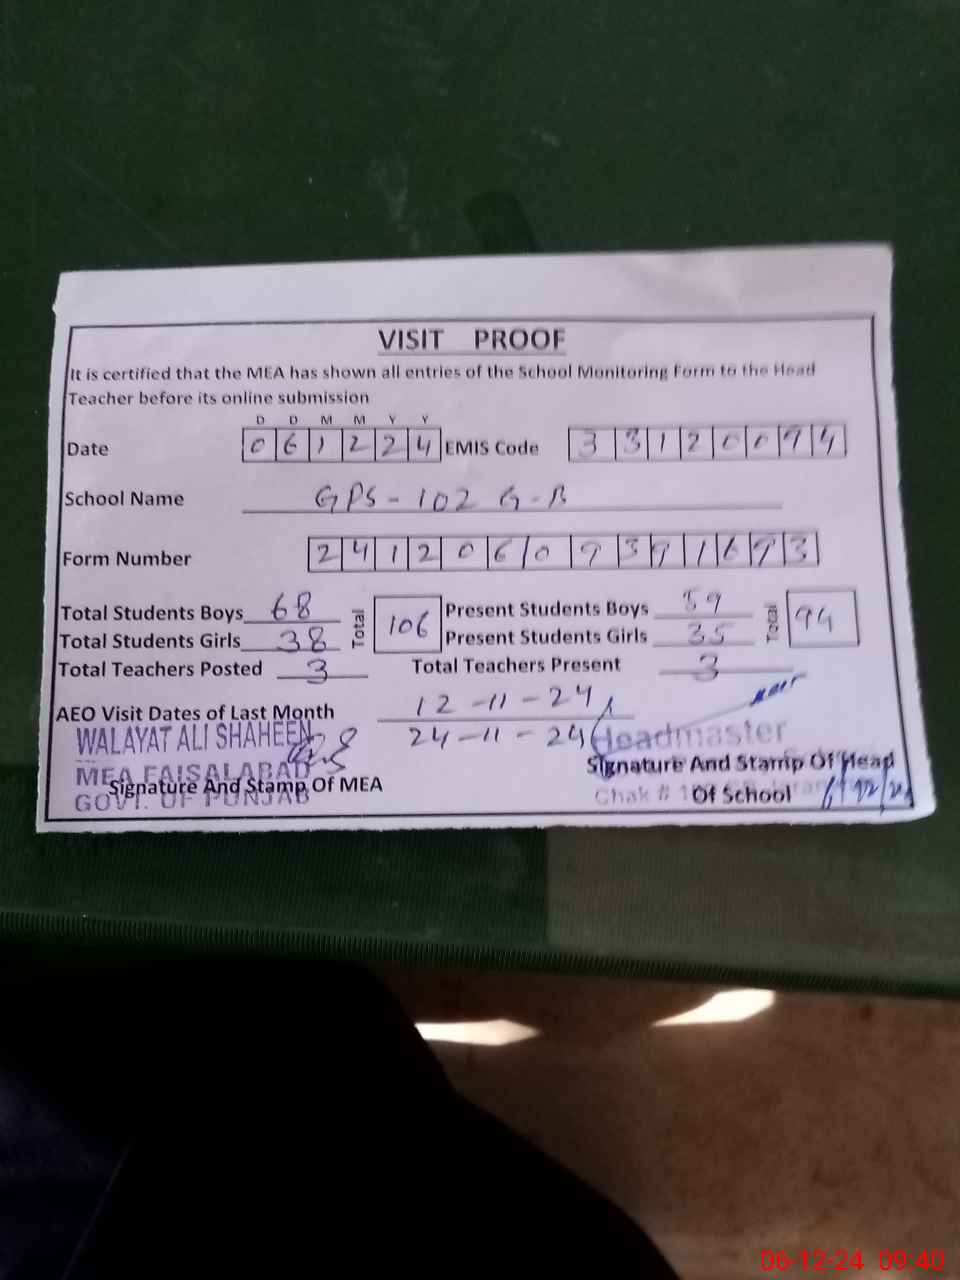 VISIT PROOF
It is certified that the MEA has shown all entries of the School Monitoring Form to the Head
Teacher before its online submission
D D M M Y Y
Date 0 6 1 2 2 4 EMIS Code 3 3 1 2 0 0 9 4
School Name GPS - 102 G-B
Form Number 2 4 1 2 0 6 0 9 3 9 1 6 9 3
Total Students Boys 68 Total 106 Present Students Boys 59 Total 94
Total Students Girls 38 Present Students Girls 35
Total Teachers Posted 3 Total Teachers Present 3
AEO Visit Dates of Last Month 12-11-24
24-11-24
WALAYAT ALI SHAHEEN
MEA FAISALABAD
GOVT. OF PUNJAB
Signature And Stamp Of MEA
Headmaster
Signature And Stamp Of Head
Of School
Chak #
06-12-24 09:40